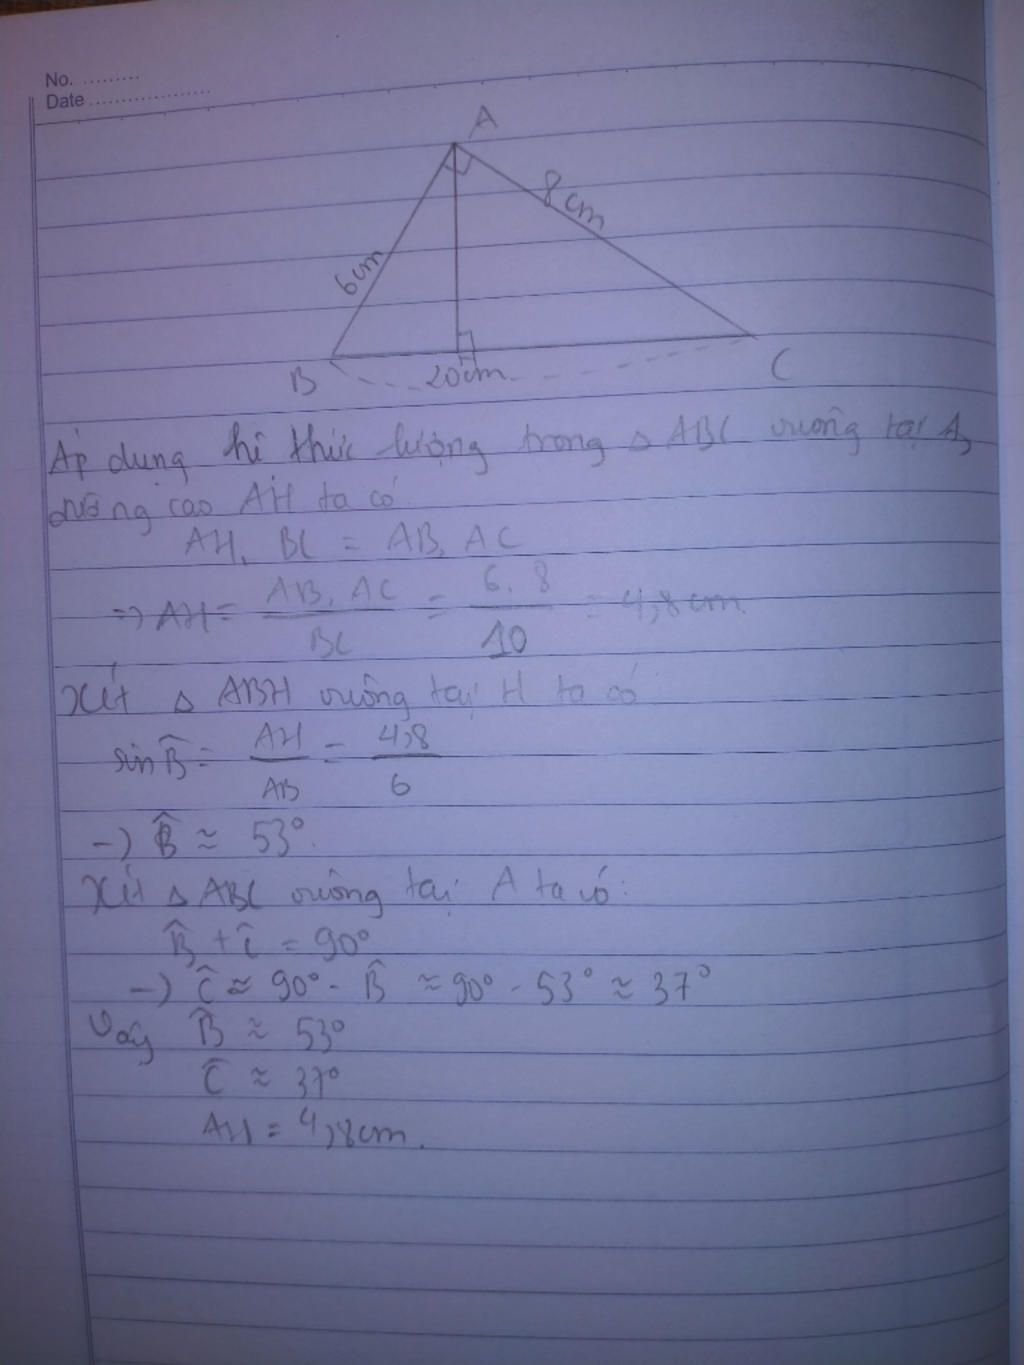 No. .........
Date ...................
A
8cm
6cm
B
20cm
C
Áp dụng hệ thức lượng trong △ ABC vuông tại A,
đường cao AH ta có
AH. BC = AB. AC
=> AH = AB. AC / BC = 6. 8 / 10 = 4,8 cm
Xét △ ABH vuông tại H ta có
sin B̂ = AH / AB = 4,8 / 6
-) B̂ ≈ 53°.
Xét △ ABC vuông tại A ta có:
B̂ + Ĉ = 90°
-) Ĉ ≈ 90° - B̂ ≈ 90° - 53° ≈ 37°
Vậy B̂ ≈ 53°
Ĉ ≈ 37°
AH = 4,8cm.